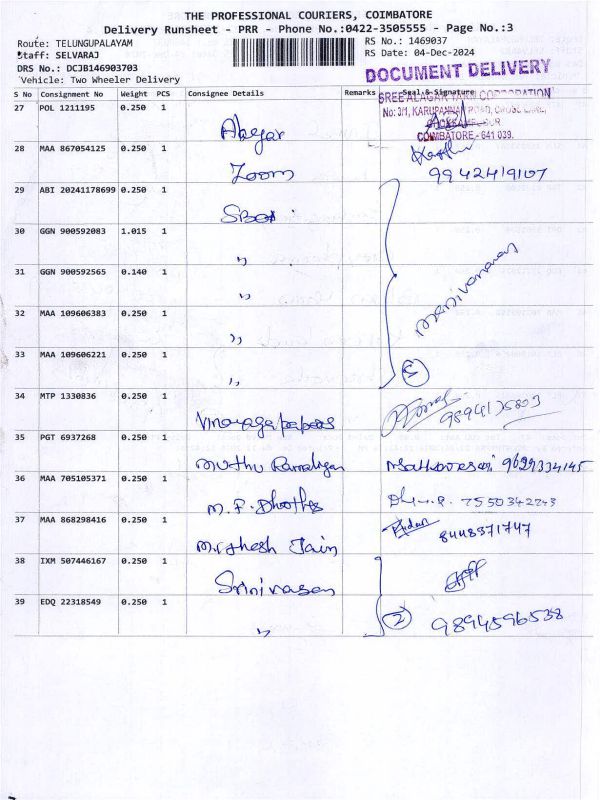 THE PROFESSIONAL COURIERS, COIMBATORE
Delivery Runsheet - PRR - Phone No.:0422-3505555 - Page No.:3
Route: TELUNGUPALAYAM RS No.: 1469037
Staff: SELVARAJ RS Date: 04-Dec-2024
DRS No.: DCJB146903703
DOCUMENT DELIVERY
Vehicle: Two Wheeler Delivery
S No Consignment No Weight PCS Consignee Details Remarks Seal & Signature
SREE ALAGAR YARN CORPORATION
27 POL 1211195 0.250 1 Alagar
No: 3/1, KARUPANNAN ROAD,
COIMBATORE - 641 039.
28 MAA 867054125 0.250 1 Zoom
9942419107
29 ABI 20241178699 0.250 1
30 GGN 900592083 1.015 1 "
31 GGN 900592565 0.140 1 "
manivannan
32 MAA 109606383 0.250 1 "
33 MAA 109606221 0.250 1 "
5
34 MTP 1330836 0.250 1 9894135803
35 PGT 6937268 0.250 1 muthu Ramalingam 9629334145
36 MAA 705105371 0.250 1 M.P. 7550342243
37 MAA 868298416 0.250 1 Jain 8448371747
38 IXM 507446167 0.250 1 Srinivasan
39 EDQ 22318549 0.250 1 " 2 9894596538